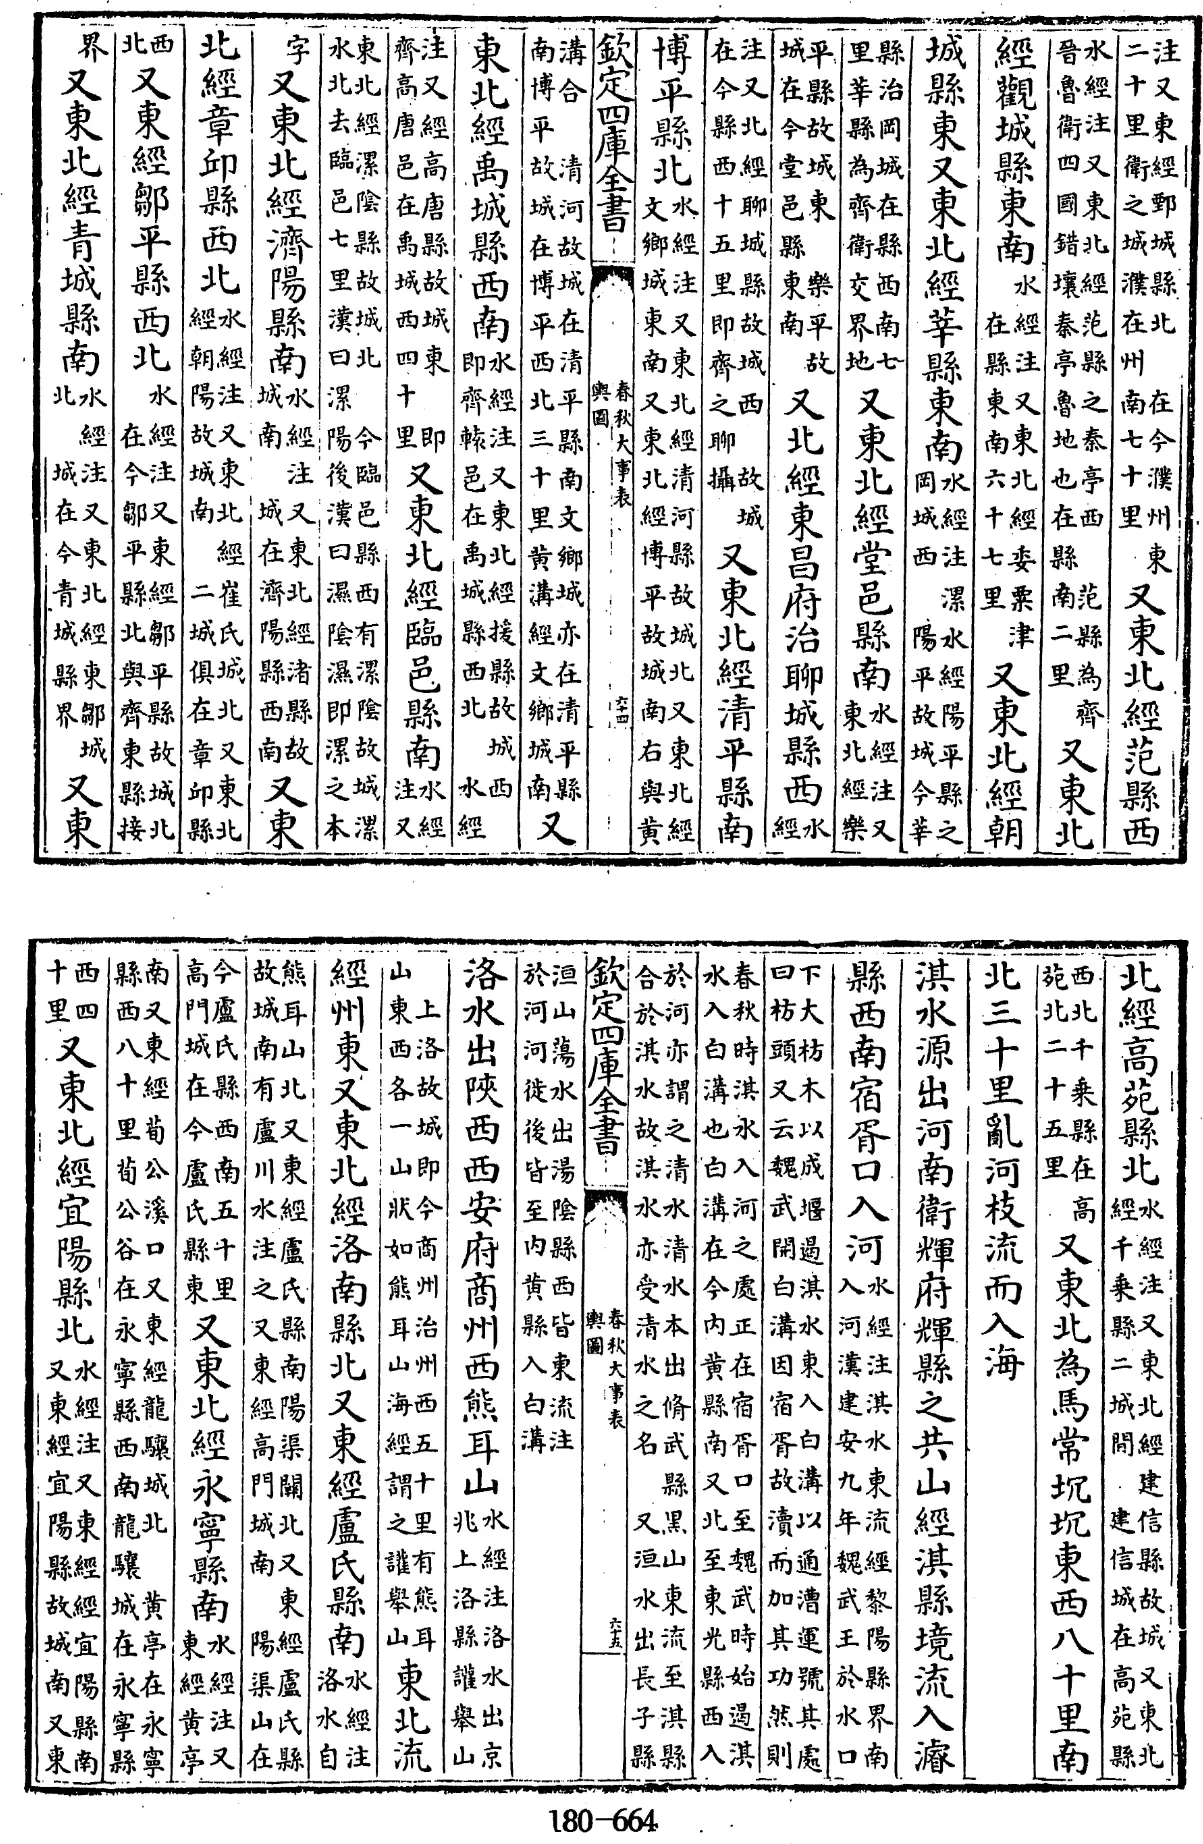 注又東經鄄城縣北在今濮州東二十里衛之城濮在州南七十里又東北經范縣西
水經注又東北經范縣之秦亭西范縣為齊晉魯衛四國錯壤秦亭魯地也在縣南二里又東北
經觀城縣東南水經注又東北經委粟津在縣東南六十七里又東北經朝
城縣東又東北經莘縣東南水經注漯水經陽平縣之岡城西陽平故城今莘
縣治岡城在縣西南七里莘縣為齊衛交界地又東北經堂邑縣南水經注又東北經樂
平縣故城東樂平故城在今堂邑縣東南又北經東昌府治聊城縣西水經
注又北經聊城縣故城西故城在今縣西十五里即齊之聊攝又東北經清平縣南
博平縣北水經注又東北經清河縣故城北又東北經文鄉城東南又東北經博平故城南右與黃
欽定四庫全書 春秋大事表 輿圖 六十四
溝合清河故城在清平縣南文鄉城亦在清平縣南博平故城在博平西北三十里黃溝經文鄉城南又
東北經禹城縣西南水經注又東北經援縣故城西即齊轅邑在禹城縣西北水經
注又經高唐縣故城東即齊高唐邑在禹城西四十里又東北經臨邑縣南水經注又
東北經漯陰縣故城北今臨邑縣西有漯陰故城漯水北去臨邑七里漢曰漯陽後漢曰濕陰濕即漯之本
字又東北經濟陽縣南水經注又東北經渚縣故城南城在濟陽縣西南又東
北經章邱縣西北水經注又東北經崔氏城北又東北經朝陽故城南二城俱在章邱縣
西北又東經鄒平縣西北水經注又東經鄒平縣故城北在今鄒平縣北與齊東縣接
界又東北經青城縣南水經注又東北經東鄒城北城在今青城縣界又東
北經高苑縣北水經注又東北經建信縣故城又東北經千乘縣二城間建信城在高苑縣
西北千乘縣在高苑北二十五里又東北為馬常坈坈東西八十里南
北三十里亂河枝流而入海
淇水源出河南衛輝府輝縣之共山經淇縣境流入濬
縣西南宿胥口入河水經注淇水東流經黎陽縣界南入河漢建安九年魏武王於水口
下大枋木以成堰遏淇水東入白溝以通漕運號其處曰枋頭又云魏武開白溝因宿胥故瀆而加其功然則
春秋時淇水入河之處正在宿胥口至魏武時始遏淇水入白溝也白溝在今內黃縣南又北至東光縣西入
於河亦謂之清水清水本出脩武縣黑山東流至淇縣合於淇水故淇水亦受清水之名又洹水出長子縣
欽定四庫全書 春秋大事表 輿圖 六十五
洹山蕩水出湯陰縣西皆東流注於河河徙後皆至內黃縣入白溝
洛水出陝西西安府商州西熊耳山水經注洛水出京兆上洛縣讙舉山
上洛故城即今商州治州西五十里有熊耳山東西各一山狀如熊耳山海經謂之讙舉山東北流
經州東又東北經洛南縣北又東經盧氏縣南水經注洛水自
熊耳山北又東經盧氏縣南陽渠關北又東經盧氏縣故城南有盧川水注之又東經高門城南陽渠山在
今盧氏縣西南五十里高門城在今盧氏縣東又東北經永寧縣南水經注又東經黃亭
南又東經荀公溪口又東經龍驤城北黃亭在永寧縣西八十里荀公谷在永寧縣西南龍驤城在永寧縣
西四十里又東北經宜陽縣北水經注又東經宜陽縣南又東經宜陽縣故城南又東
180-664